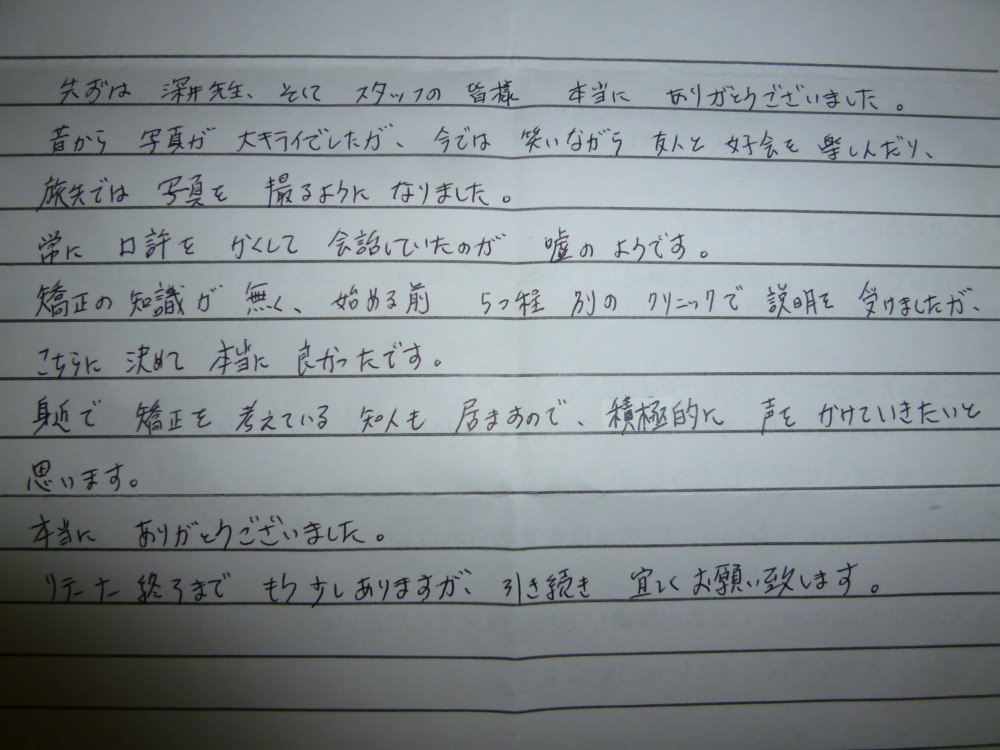 先ずは 深井先生、そして スタッフの 皆様 本当に ありがとうございました。
昔から 写真が 大キライでしたが、今では 笑いながら 友人と 会を 楽しんだり、
旅先では 写真を 撮るように なりました。
常に 口許を かくして 会話していたのが 嘘のようです。
矯正の 知識が 無く、始める前 5つ程 別の クリニックで 説明を 受けましたが、
こちらに 決めて 本当に 良かったです。
身近で 矯正を 考えている 知人も 居ますので、積極的に 声を かけていきたいと
思います。
本当に ありがとうございました。
リテーナー 終了まで もう少しありますが、引き続き 宜しくお願い致します。